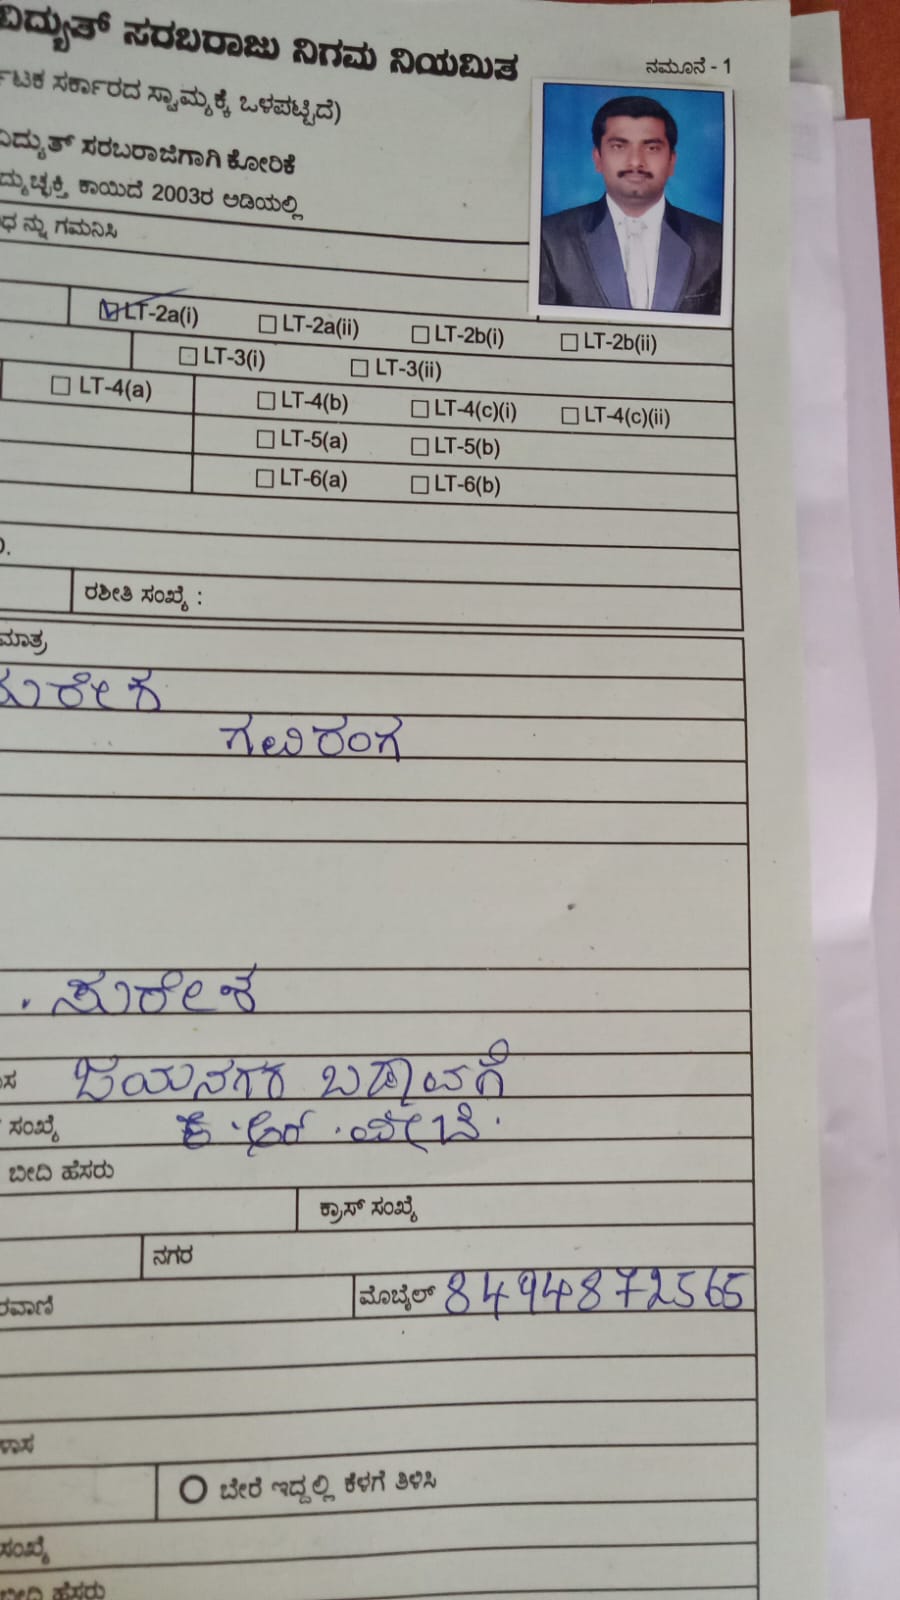 ವಿದ್ಯುತ್ ಸರಬರಾಜು ನಿಗಮ ನಿಯಮಿತ
ನಮೂನೆ - 1
ಸರ್ಕಾರದ ಸ್ವಾಮ್ಯಕ್ಕೆ ಒಳಪಟ್ಟಿದೆ)
ವಿದ್ಯುತ್ ಸರಬರಾಜಿಗಾಗಿ ಕೋರಿಕೆ
ಕಾಯಿದೆ 2003ರ ಅಡಿಯಲ್ಲಿ
ಗಮನಿಸಿ
LT-2a(i) LT-2a(ii) LT-2b(i) LT-2b(ii)
LT-3(i) LT-3(ii)
LT-4(a) LT-4(b) LT-4(c)(i) LT-4(c)(ii)
LT-5(a) LT-5(b)
LT-6(a) LT-6(b)
ರಶೀತಿ ಸಂಖ್ಯೆ :
ಮಾತ್ರ
ಸುರೇಶ
ಗವಿರಂಗ
. ಸುರೇಶ
ಜಯನಗರ ಬಡಾವಣೆ
ಸಂಖ್ಯೆ ಕೆ.ಆರ್.ಪೇಟೆ.
ಬೀದಿ ಹೆಸರು
ಕ್ರಾಸ್ ಸಂಖ್ಯೆ
ನಗರ
ಮೊಬೈಲ್ 8494872565
ಬೇರೆ ಇದ್ದಲ್ಲಿ ಕೆಳಗೆ ತಿಳಿಸಿ
ಸಂಖ್ಯೆ
ಬೀದಿ ಹೆಸರು